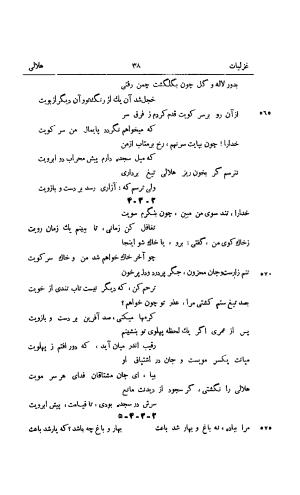 غزلیات ۳۸ هلالی
بدور لاله و گل چون بگلگشت چمن رفتی
خجل شد آن یك از رنگت و آن دیگر از بویت
۵۶۵ از آن رو بر سر کویت قدم کردم ز فرق سر
که میخواهم نگردد پایمال من سر کویت
خدارا! چون بپایت سر نهم، رخ برمتاب از من
که میل سجده دارم پیش محراب دو ابرویت
نترسم گر بخون ریز هلالی تیغ برداری
ولی ترسم که: آزاری رسد بر دست و بازویت
خدارا، تند سوی من مبین، چون بنگرم سویت
تغافل کن زمانی، تا ببینم یك زمان رویت
ز خاك کوی من، گفتی: برو، یا خاك شو اینجا
چو آخر خاك خواهم شد من و خاك سر کویت
۵۷۰ تنم زارست و جان محزون، جگر پر درد و دل پر خون
ترحم کن، که دیگر نیست تاب تندی از خویت
بصد تیغ ستم کشتی مرا، عذر تو چون خواهم؟
کرمها میکنی، صد آفرین بر دست و بازویت
پس از عمری اگر یك لحظه پهلوی تو بنشینم
رقیب اندر میان آید، که دور افتم ز پهلویت
میانت یکسر مویست و جان در اشتیاق او
بیا، ای جان مشتاقان فدای هر سر مویت
هلالی را نگشتی، گر سجود از دیدنت مانع
سرش در سجده بودی، تا قیامت، پیش ابرویت
۵۷۵ مرا بباده، نه باغ و بهار شد باعث بهار و باغ چه باشد؟ که یار شد باعث